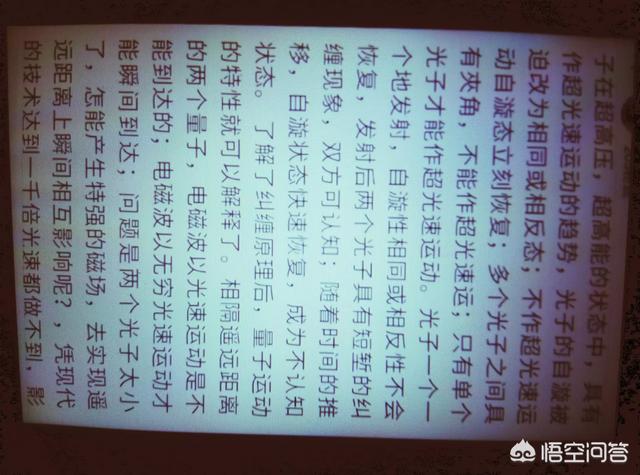 子在超高压，超高能的状态中，具有
作超光速运动的趋势，光子的自漩被
迫改为相同或相反态；不作超光速运
动自漩态立刻恢复；多个光子之间具
有夹角，不能作超光速运；只有单个
光子才能作超光速运动。光子一个一
个地发射，自漩性相同或相反性不会
恢复，发射后两个光子具有短堑的纠
缠现象，双方可认知；随着时间的推
移，自漩状态快速恢复，成为不认知
状态。了解了纠缠原理后，量子运动
的特性就可以解释了。相隔遥远距离
的两个量子，电磁波以光速运动是不
能到达的；电磁波以无穷光速运动才
能瞬间到达；问题是两个光子太小
了，怎能产生特强的磁场，去实现遥
远距离上瞬间相互影响呢？，凭现代
的技术达到一千倍光速都做不到，影
悟空问答